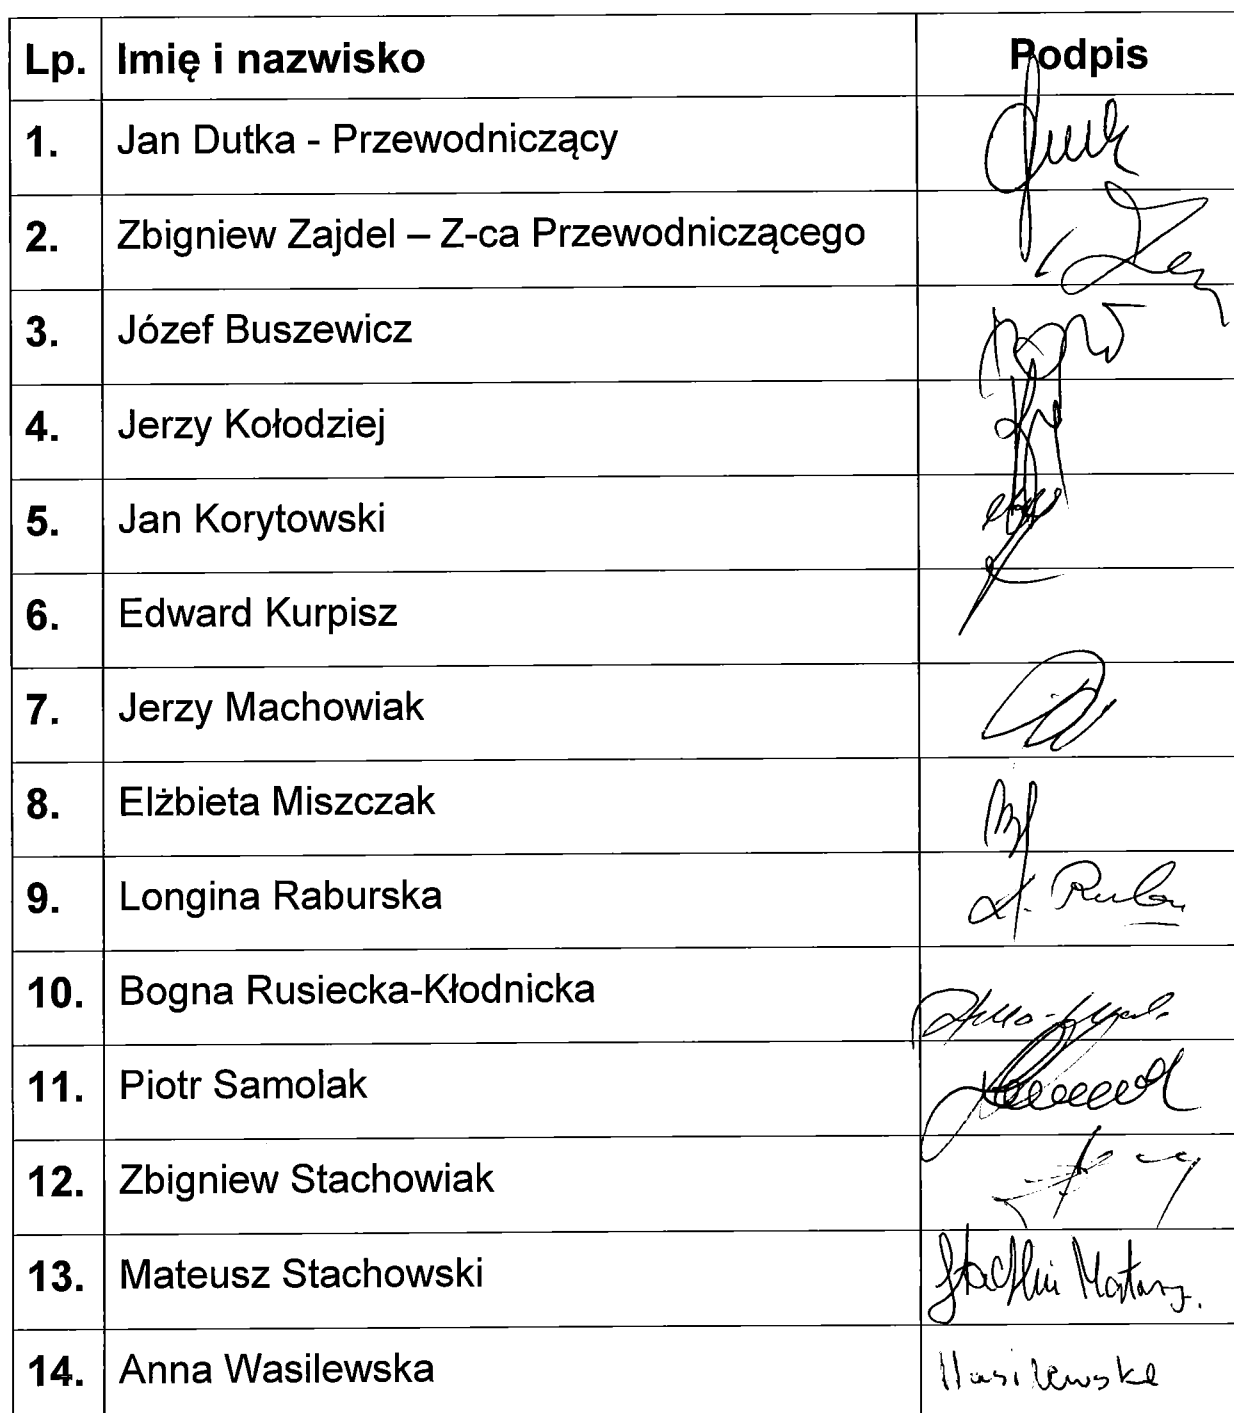 Lp. Imię i nazwisko Podpis
1. Jan Dutka - Przewodniczący
2. Zbigniew Zajdel – Z-ca Przewodniczącego
3. Józef Buszewicz
4. Jerzy Kołodziej
5. Jan Korytowski
6. Edward Kurpisz
7. Jerzy Machowiak
8. Elżbieta Miszczak
9. Longina Raburska
10. Bogna Rusiecka-Kłodnicka
11. Piotr Samolak
12. Zbigniew Stachowiak
13. Mateusz Stachowski
14. Anna Wasilewska Wasilewska